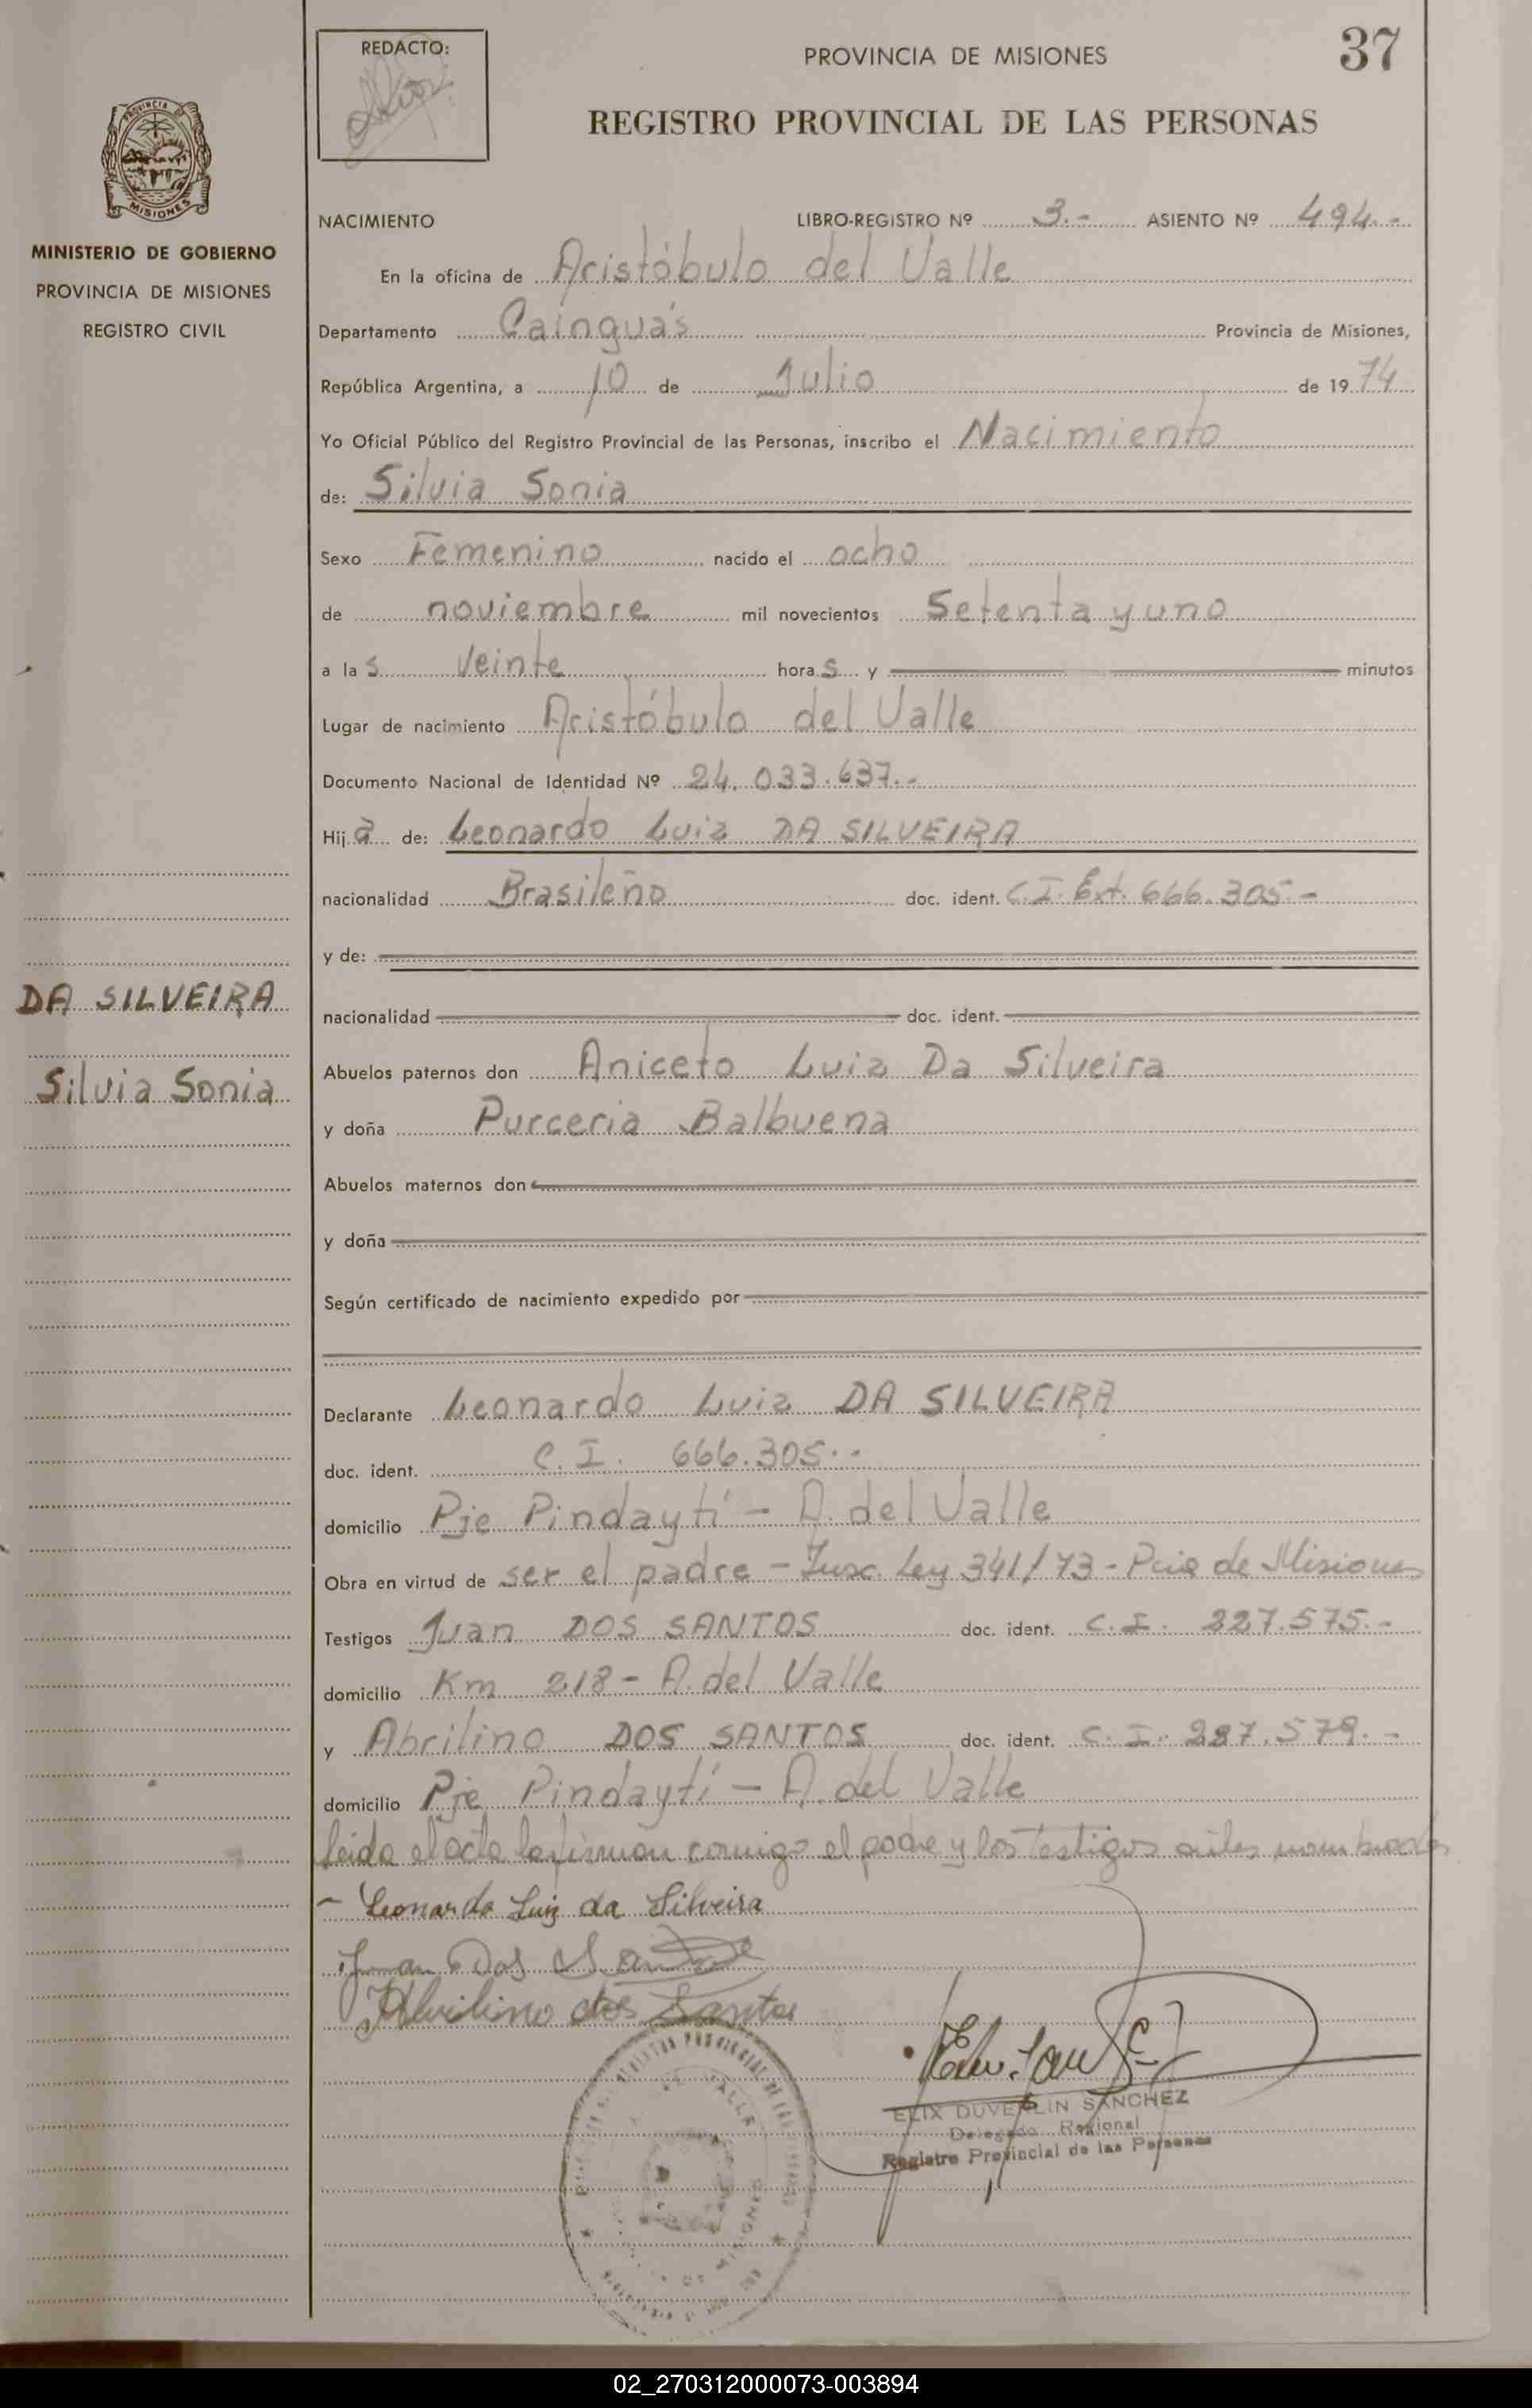 REDACTO:
PROVINCIA DE MISIONES
37
REGISTRO PROVINCIAL DE LAS PERSONAS
PROVINCIA DE
MISIONES
MINISTERIO DE GOBIERNO
PROVINCIA DE MISIONES
REGISTRO CIVIL
DA SILVEIRA
Silvia Sonia
NACIMIENTO LIBRO-REGISTRO Nº 3.- ASIENTO Nº 494.-
En la oficina de Aristóbulo del Valle
Departamento Cainguás Provincia de Misiones,
República Argentina, a 10 de Julio de 1974
Yo Oficial Público del Registro Provincial de las Personas, inscribo el Nacimiento
de: Silvia Sonia
Sexo Femenino nacido el ocho
de noviembre mil novecientos Setenta y uno
a las veinte horas y minutos
Lugar de nacimiento Aristóbulo del Valle
Documento Nacional de Identidad Nº 24.033.637.-
Hija de: Leonardo Luiz DA SILVEIRA
nacionalidad Brasileño doc. ident. C.I. Ext. 666.305.-
y de:
nacionalidad doc. ident.
Abuelos paternos don Aniceto Luiz Da Silveira
y doña Purceria Balbuena
Abuelos maternos don
y doña
Según certificado de nacimiento expedido por
Declarante Leonardo Luiz DA SILVEIRA
doc. ident. C.I. 666.305.-
domicilio Pje Pindaytí - A. del Valle
Obra en virtud de ser el padre - Insc. Ley 341/73 - Pcia de Misiones
Testigos Juan DOS SANTOS doc. ident. C.I. 227.575.-
domicilio Km 218 - A. del Valle
y Abrilino DOS SANTOS doc. ident. C.I. 287.579.-
domicilio Pje Pindaytí - A. del Valle
leida el acta la firman conmigo el padre y los testigos antes nombrados
- Leonardo Luiz da Silveira
Juan Dos Santos
Abrilino dos Santos
ELIX DUVERLIN SANCHEZ
Delegado Regional
Registro Provincial de las Personas
02_270312000073-003894